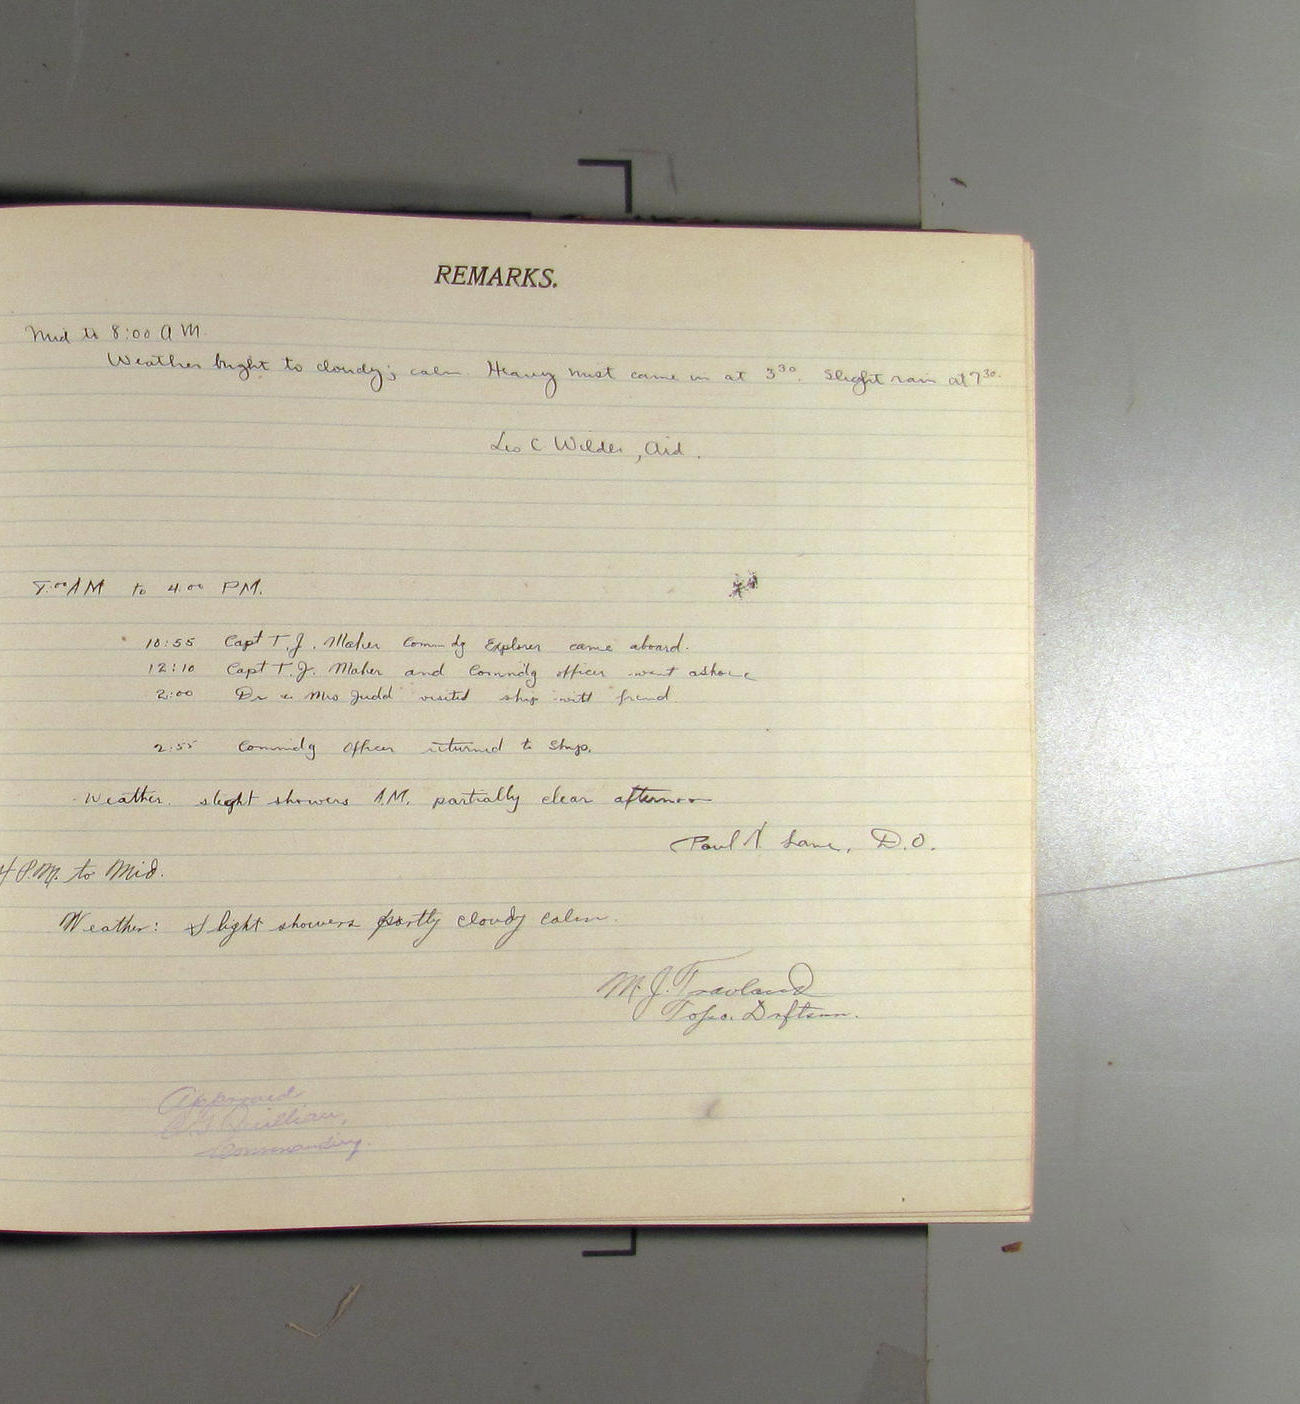 REMARKS.
Mid to 8:00 A M.
Weather bright to cloudy; calm. Heavy mist came in at 3³⁰. Slight rain at 7³⁰.
Leo C Wilder, Aid.
8:⁰⁰ AM to 4:⁰⁰ PM.
10:55 Capt T. J. Maher Commdg Explorer came aboard.
12:10 Capt T. J. Maher and Commdg officer went ashore
2:00 Dr & Mrs Judd visited ship with friend.
2:55 Commdg Officer returned to Ship.
Weather. slight showers A.M. partially clear afternoon
Paul Lane, D.O.
4 P.M. to Mid.
Weather: Slight showers partly cloudy calm.
M. J. Travland
Topo. Draftsmn.
Approved
Commanding.